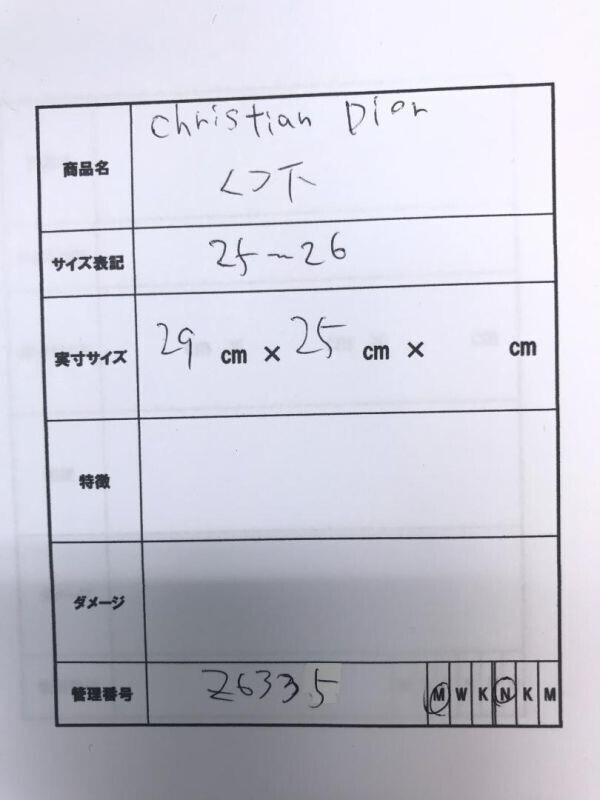 商品名 Christian Dior
くつ下
サイズ表記 25〜26
実寸サイズ 29 cm × 25 cm × cm
特徴
ダメージ
管理番号 Z6335 M W K N K M